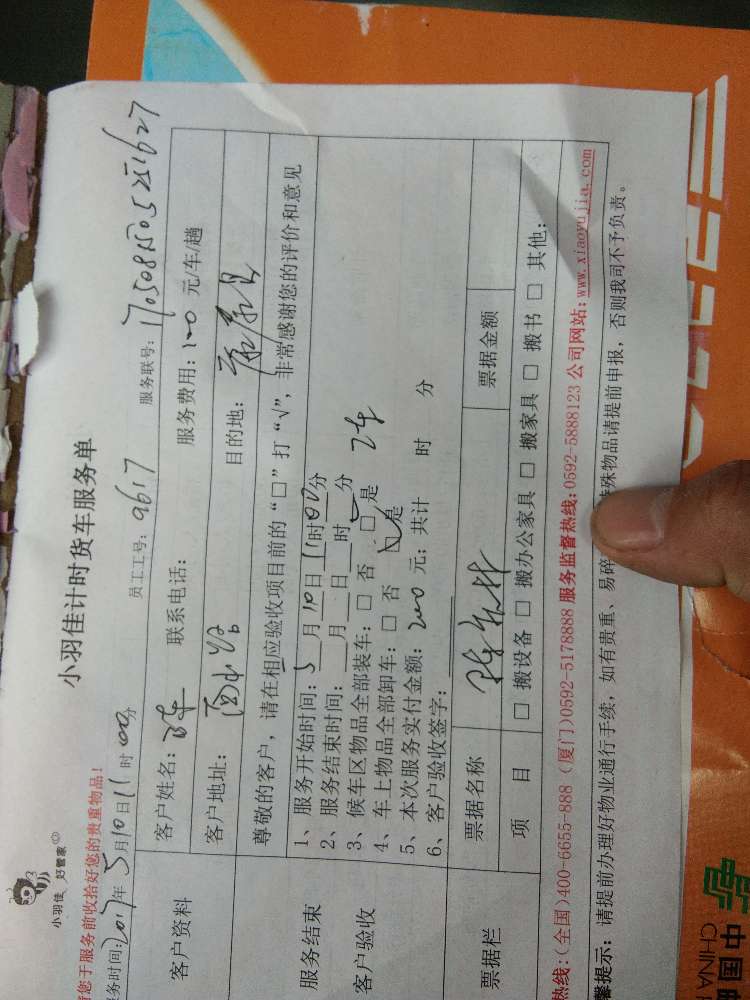 小羽佳 好管家
小羽佳计时货车服务单
您于服务前收拾好您的贵重物品!
务时间:2017年5月10日11时00分 员工工号: 9617 服务联号: 1705081505251627
客户资料
客户姓名: 陈 联系电话: 服务费用: 100 元/车/趟
客户地址: 目的地:
尊敬的客户,请在相应验收项目前的“□”打“√”,非常感谢您的评价和意见
服务结束
客户验收
1、服务开始时间: 5月10日11时00分
2、服务结束时间: 月 日 时 分
3、候车区物品全部装车: □ 否 □ 是 2车
4、车上物品全部卸车: □ 否 ☑ 是
5、本次服务实付金额: 200 元; 共计 时 分
6、客户验收签字:
票据栏
票据名称 票据金额
项 目 □ 搬设备 □ 搬办公家具 □ 搬家具 □ 搬书 □ 其他:
热线:(全国)400-6655-888 (厦门)0592-5178888 服务监督热线:0592-5888123 公司网站:www.xiaoyujia.com
馨提示: 请提前办理好物业通行手续, 如有贵重、易碎 殊物品请提前申报, 否则我司不予负责。
中国
CHINA